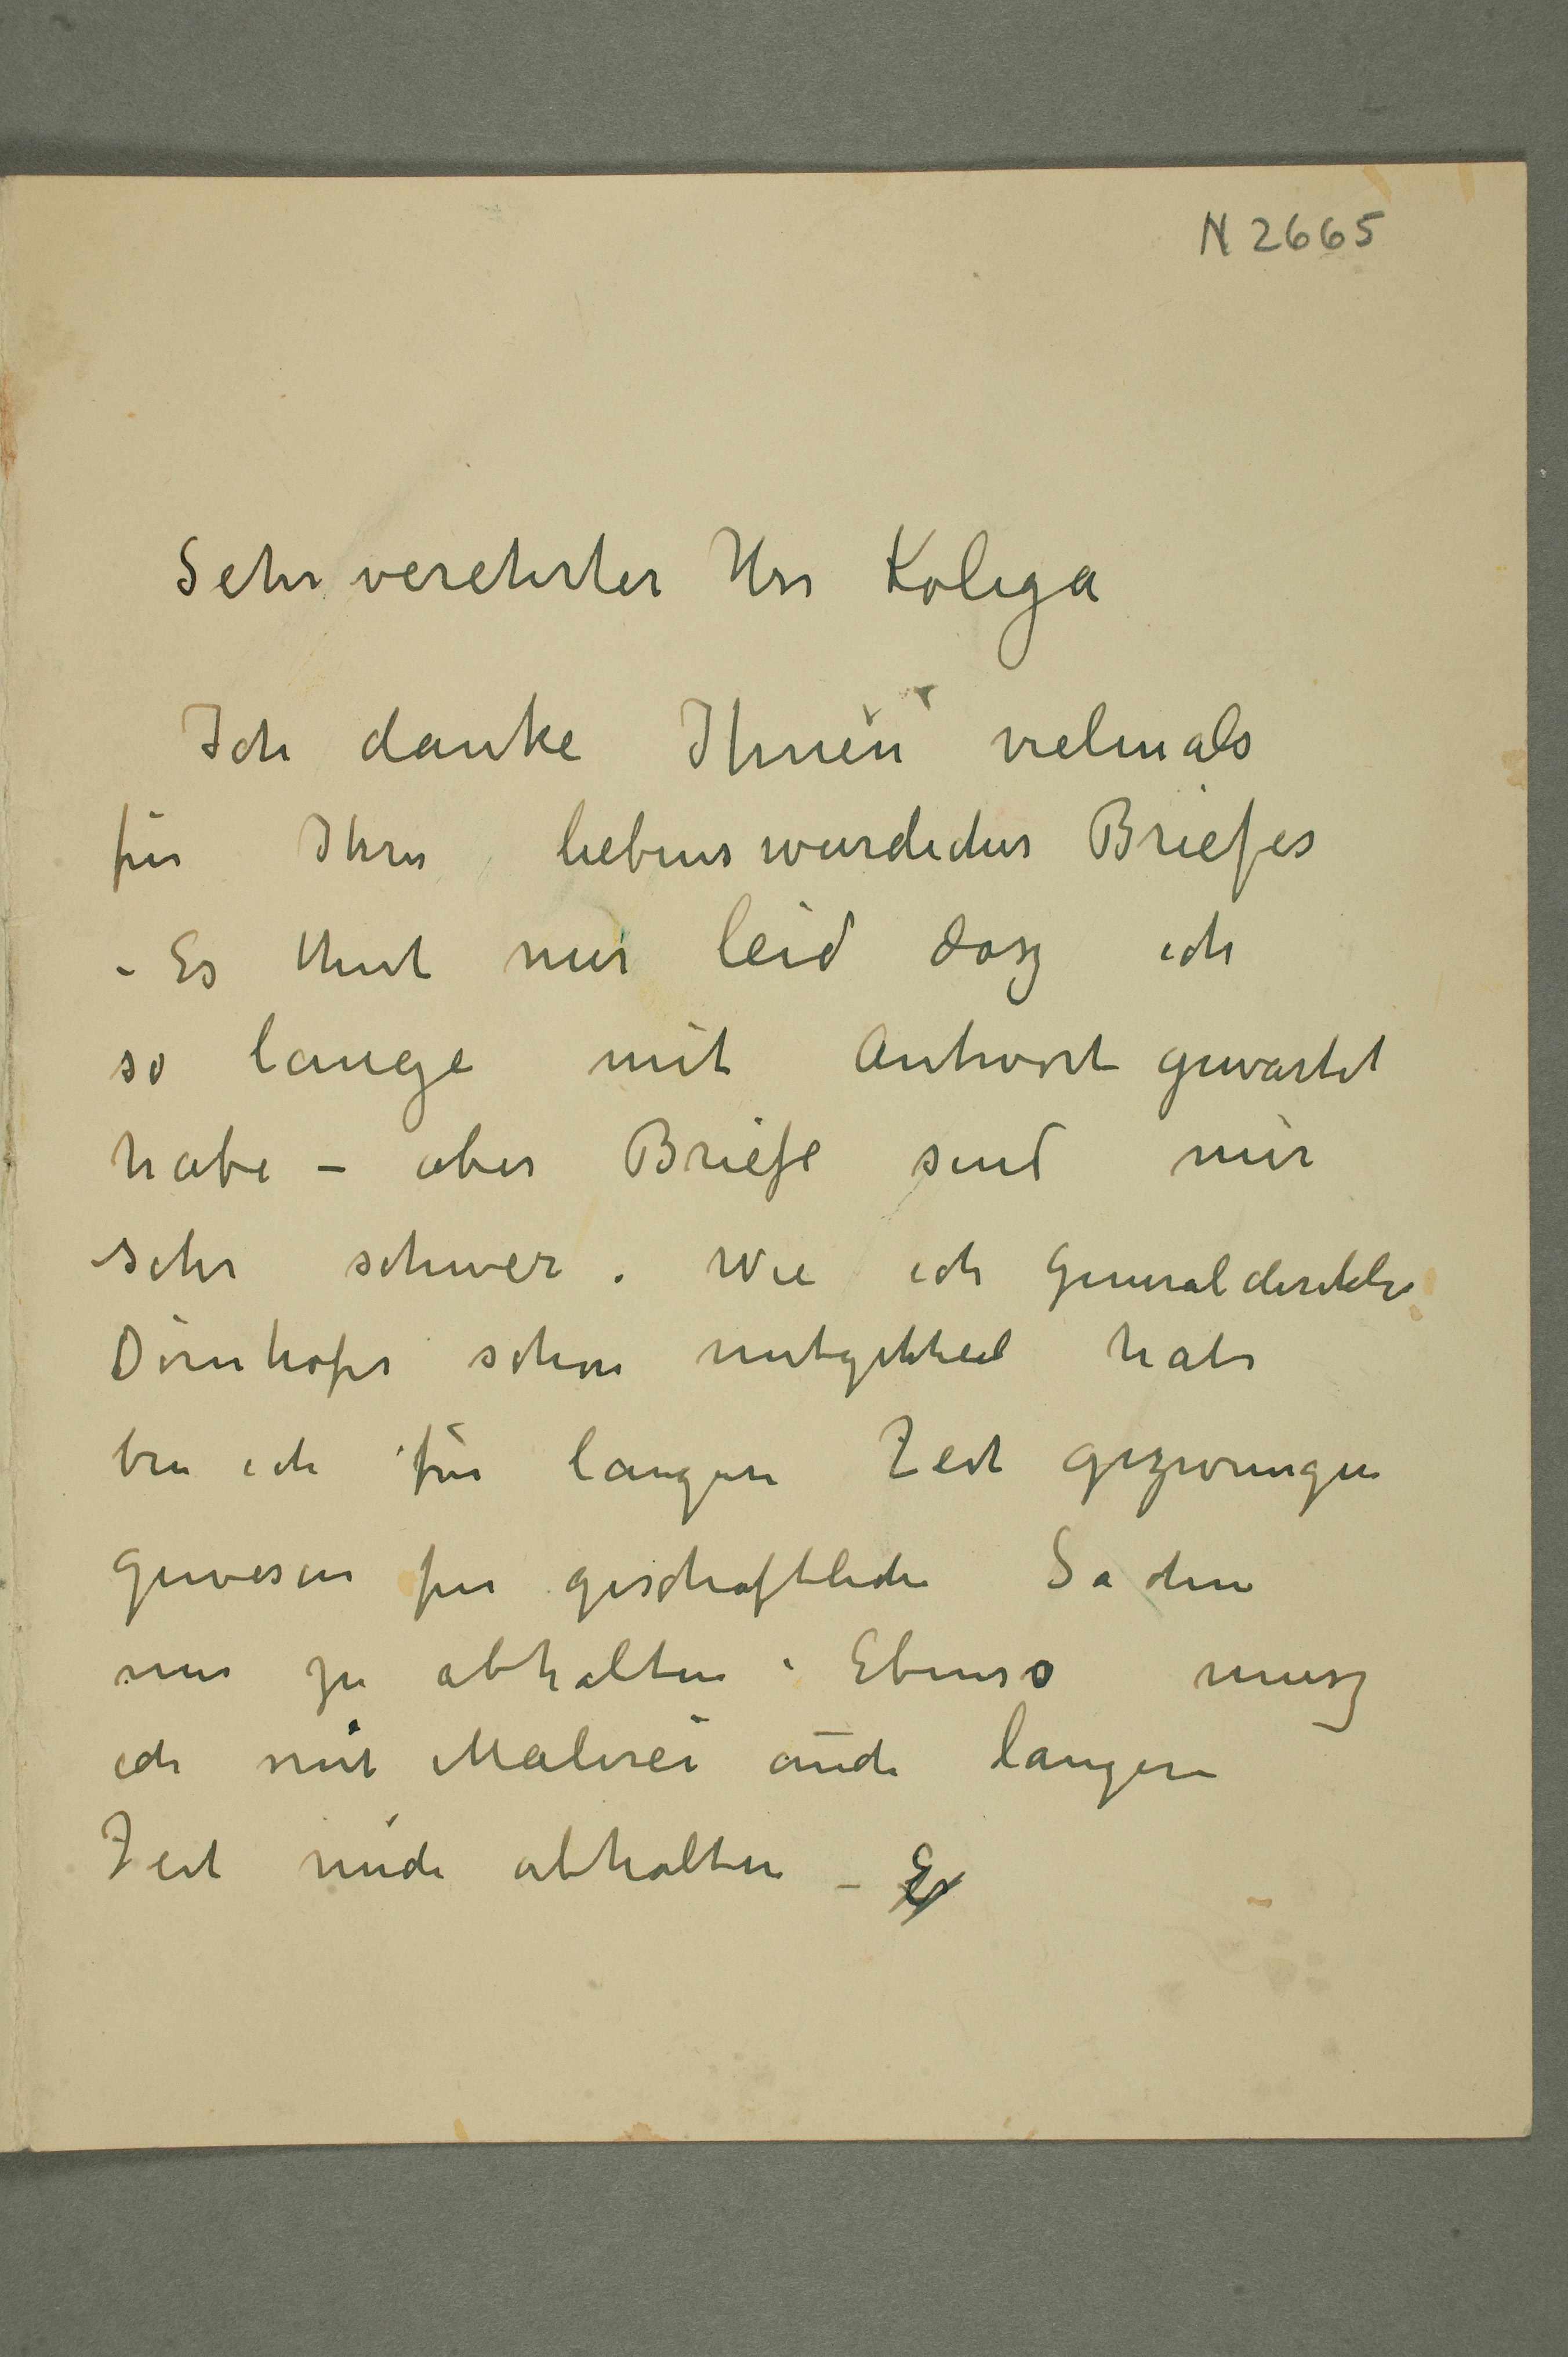 N 2665
Sehr verehrter Herr Kolega
Ich danke Ihnen vielmals
für Ihre liebenswurdiches Briefes
- Es thut mir leid dasz ich
so lange mit Antwort gewartet
habe – aber Briefe sind mir
sehr schwer. Wie ich Generaldirektor
Dörnhöfer schon mitgetheilt habe
bin ich für langere Zeit gezwungen
gewesen fur geschaftliche Sachen
mir zu abhalten. Ebenso musz
ich mit Malerei auch langere
Zeit mich abhalten – Es